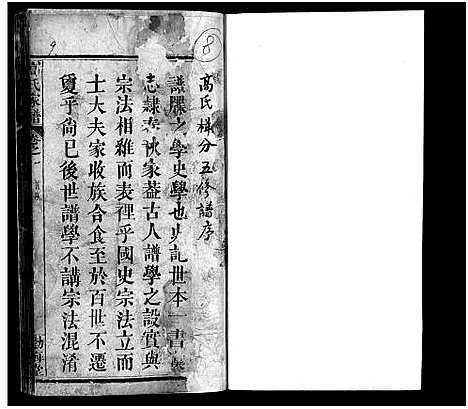 8
高氏梯分五修譜序
譜牒之學史學也史記世本一書
志隸春秋家蓋古人譜學之設實與
宗法相維而表裡乎國史宗法立而
士大夫家收族合食至於百世不遷
夏乎尙已後世譜學不講宗法混淆
氏家譜